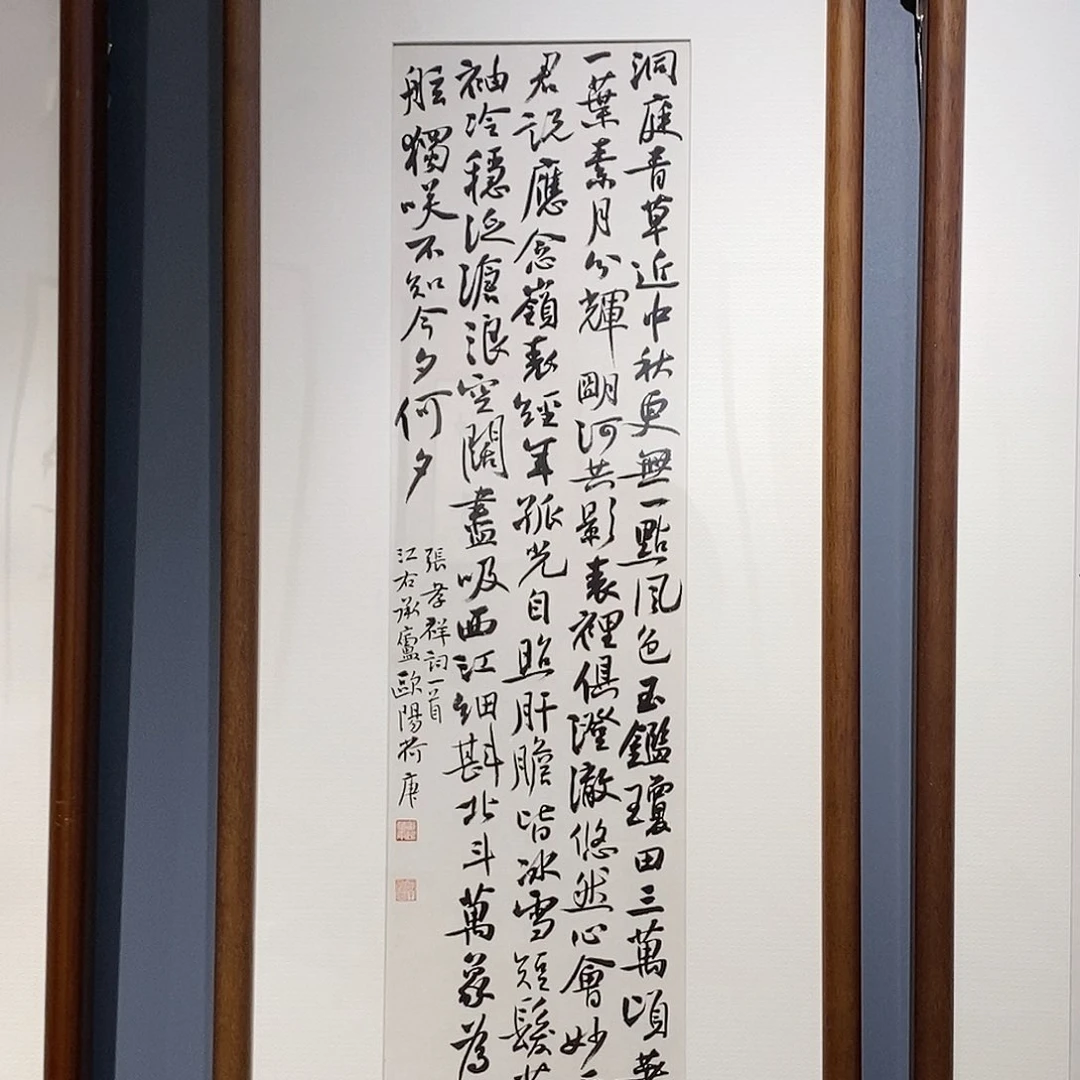 洞庭青草近中秋更無一點風色玉鑑瓊田三萬頃
一葉素月分輝明河共影表裡俱澄澈悠然心會妙
君說應念嶺表經年孤光自照肝膽皆冰雪短髮
袖冷穩泛滄浪空闊盡吸西江細斟北斗萬象為
舷獨笑不知今夕何夕
張孝祥詞一首
江右承廬歐陽荷庚